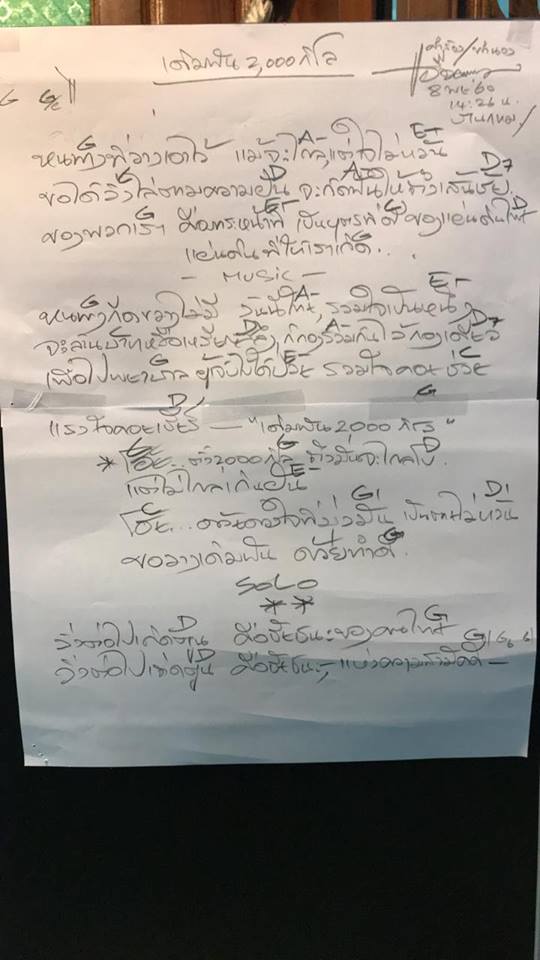 เติมฝัน 2,000 กิโล
คำร้อง/ทำนอง
8 พย 60
14:26 น.
G G/C
G A- E-
หนทางที่วางเอาไว้ แม้จะไกลแต่ใจไม่หวั่น
D D7
ขอได้วิ่งไล่ตามความฝัน จะกัดฟันให้ถึงเส้นชัย
G E- C D
ของพวกเรา คือภาระหน้าที่ เป็นบุตรที่ดีของแผ่นดินไทย
แผ่นดินที่ให้เราเกิด..
- MUSIC -
G A- E-
วันนี้ไทย รวมใจเป็นหนึ่ง
D A- D7
จะล้านบาทหรือเหรียญสลึง ก็กองรวมกันไว้กองเดียว
E- C
เพื่อโรงพยาบาล ผู้เจ็บไข้ได้ป่วย รวมใจคอยช่วย
D G
แรงใจคอยเชียร์ — "เติมฝัน 2000 กิโล"
G D
* โอ้.. ตั้ง 2000 กิโล ถึงมันจะไกลโข
E-
แต่ไม่ไกลเกินฝัน
C G D
โอ้... ด้วยดวงใจที่มุ่งมั่น
G
ขอวางเติมฝัน ด้วยทำดี
SOLO
* *
D G
วิ่งต่อไปเถิดคุณ คือชัยชนะของคนไทย
D G
วิ่งต่อไปเถิดคุณ คือชัยชนะ, แห่งความสามัคคี —